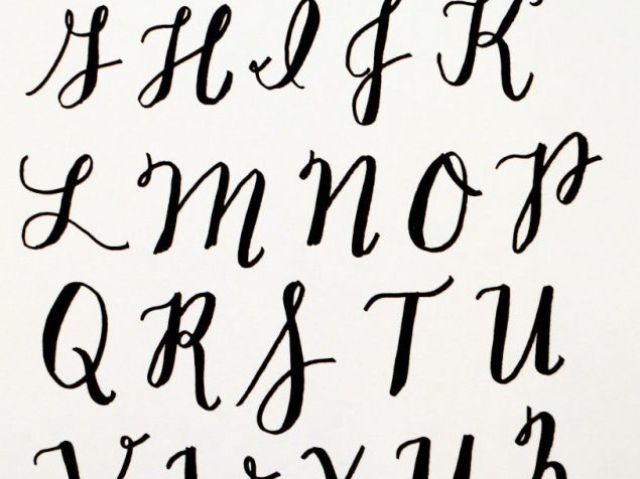 G H I J K
L M N O P
Q R S T U
V W X Y Z